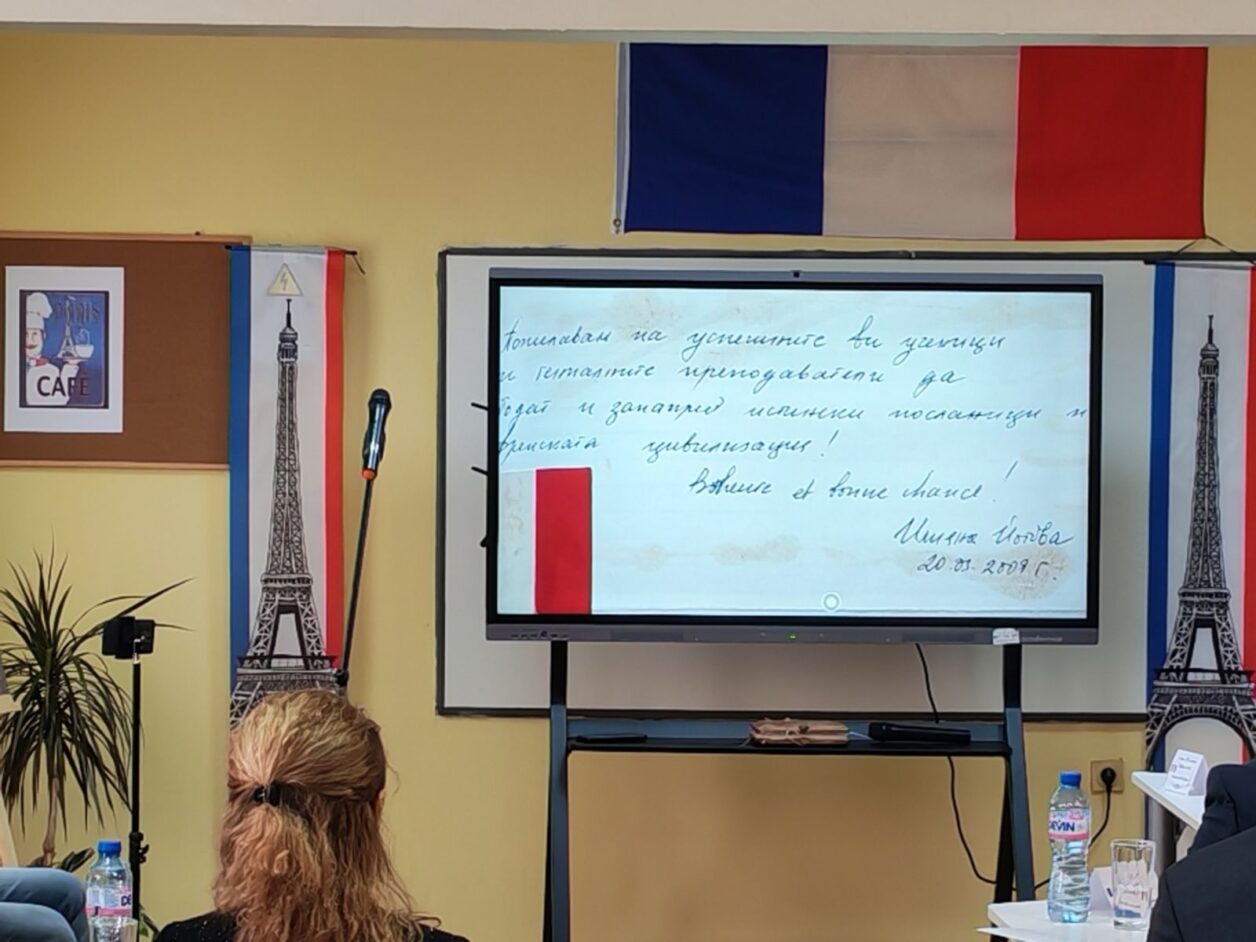 Пожелавам на успешните ви ученици
и гениалните преподаватели да
бъдат и занапред истински посланици н
френската цивилизация!
et bonne chance!
Илияна Йотова
20.03.2009 г.
PARIS
CAFÉ
DEVIN